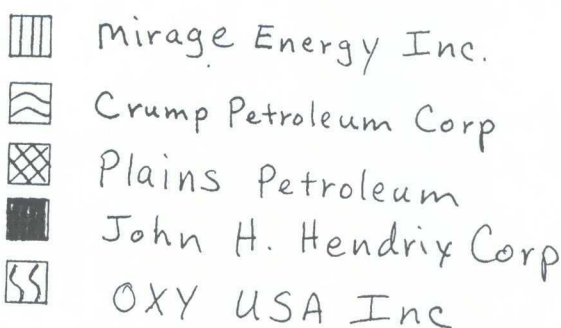 Mirage Energy Inc.
Crump Petroleum Corp
Plains Petroleum
John H. Hendrix Corp
OXY USA Inc